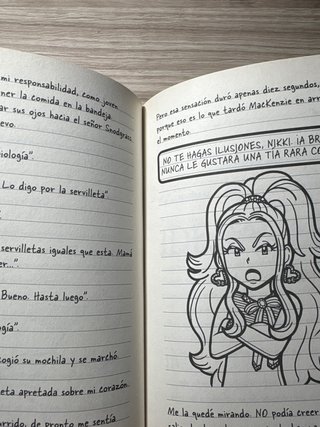 mi responsabilidad, como joven
ner la comida en la bandeja.
ar sus ojos hacia el señor Snodgrass,
evo.
iología".
Lo digo por la servilleta"
servilletas iguales que esta. Mamá
er...".
Bueno. Hasta luego".
gía".
cogió su mochila y se marchó.
eta apretada sobre mi corazón.
urrido, de pronto me sentía
Pero esa sensación duró apenas diez segundos,
porque eso es lo que tardó MacKenzie en arr
el momento.
NO TE HAGAS ILUSIONES, NIKKI. ¡A BR
NUNCA LE GUSTARA UNA TIA RARA CO
Me la quedé mirando. NO podía creer